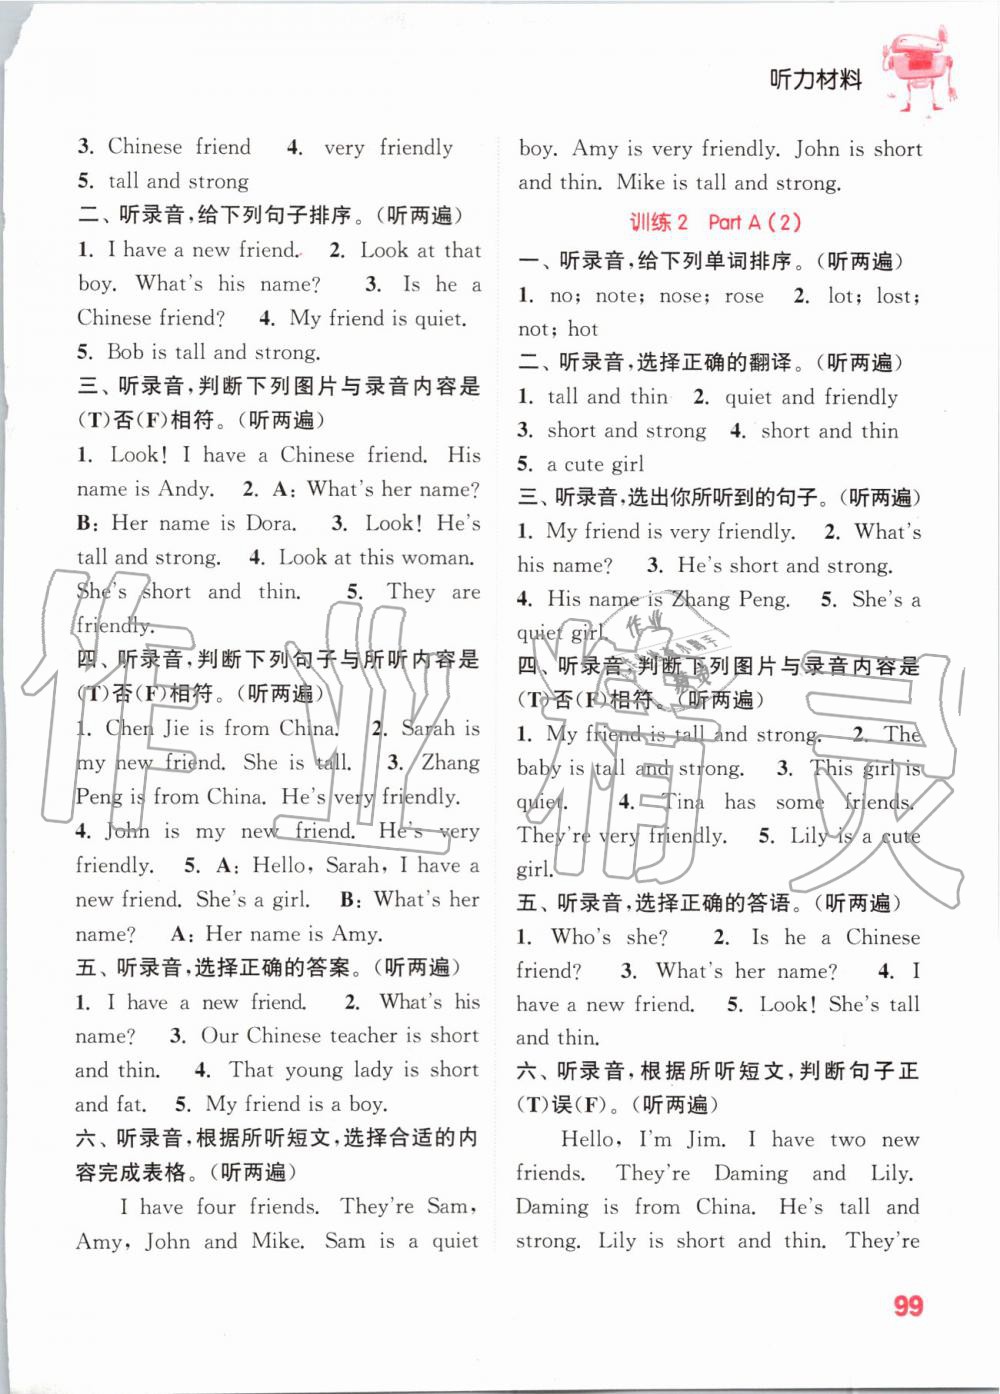 听力材料
3. Chinese friend 4. very friendly
5. tall and strong
二、听录音,给下列句子排序。(听两遍)
1. I have a new friend. 2. Look at that
boy. What's his name? 3. Is he a
Chinese friend? 4. My friend is quiet.
5. Bob is tall and strong.
三、听录音,判断下列图片与录音内容是
(T)否(F)相符。(听两遍)
1. Look! I have a Chinese friend. His
name is Andy. 2. A: What's her name?
B: Her name is Dora. 3. Look! He's
tall and strong. 4. Look at this woman.
She's short and thin. 5. They are
friendly.
四、听录音,判断下列句子与所听内容是
(T)否(F)相符。(听两遍)
1. Chen Jie is from China. 2. Sarah is
my new friend. She is tall. 3. Zhang
Peng is from China. He's very friendly.
4. John is my new friend. He's very
friendly. 5. A: Hello, Sarah, I have a
new friend. She's a girl. B: What's her
name? A: Her name is Amy.
五、听录音,选择正确的答案。(听两遍)
1. I have a new friend. 2. What's his
name? 3. Our Chinese teacher is short
and thin. 4. That young lady is short
and fat. 5. My friend is a boy.
六、听录音,根据所听短文,选择合适的内
容完成表格。(听两遍)
I have four friends. They're Sam,
Amy, John and Mike. Sam is a quiet
boy. Amy is very friendly. John is short
and thin. Mike is tall and strong.
训练2 Part A(2)
一、听录音,给下列单词排序。(听两遍)
1. no; note; nose; rose 2. lot; lost;
not; hot
二、听录音,选择正确的翻译。(听两遍)
1. tall and thin 2. quiet and friendly
3. short and strong 4. short and thin
5. a cute girl
三、听录音,选出你所听到的句子。(听两遍)
1. My friend is very friendly. 2. What's
his name? 3. He's short and strong.
4. His name is Zhang Peng. 5. She's a
quiet girl.
四、听录音,判断下列图片与录音内容是
(T)否(F)相符。(听两遍)
1. My friend is tall and strong. 2. The
baby is tall and strong. 3. This girl is
quiet. 4. Tina has some friends.
They're very friendly. 5. Lily is a cute
girl.
五、听录音,选择正确的答语。(听两遍)
1. Who's she? 2. Is he a Chinese
friend? 3. What's her name? 4. I
have a new friend. 5. Look! She's tall
and thin.
六、听录音,根据所听短文,判断句子正
(T)误(F)。(听两遍)
Hello, I'm Jim. I have two new
friends. They're Daming and Lily.
Daming is from China. He's tall and
strong. Lily is short and thin. They're
99
作业精灵